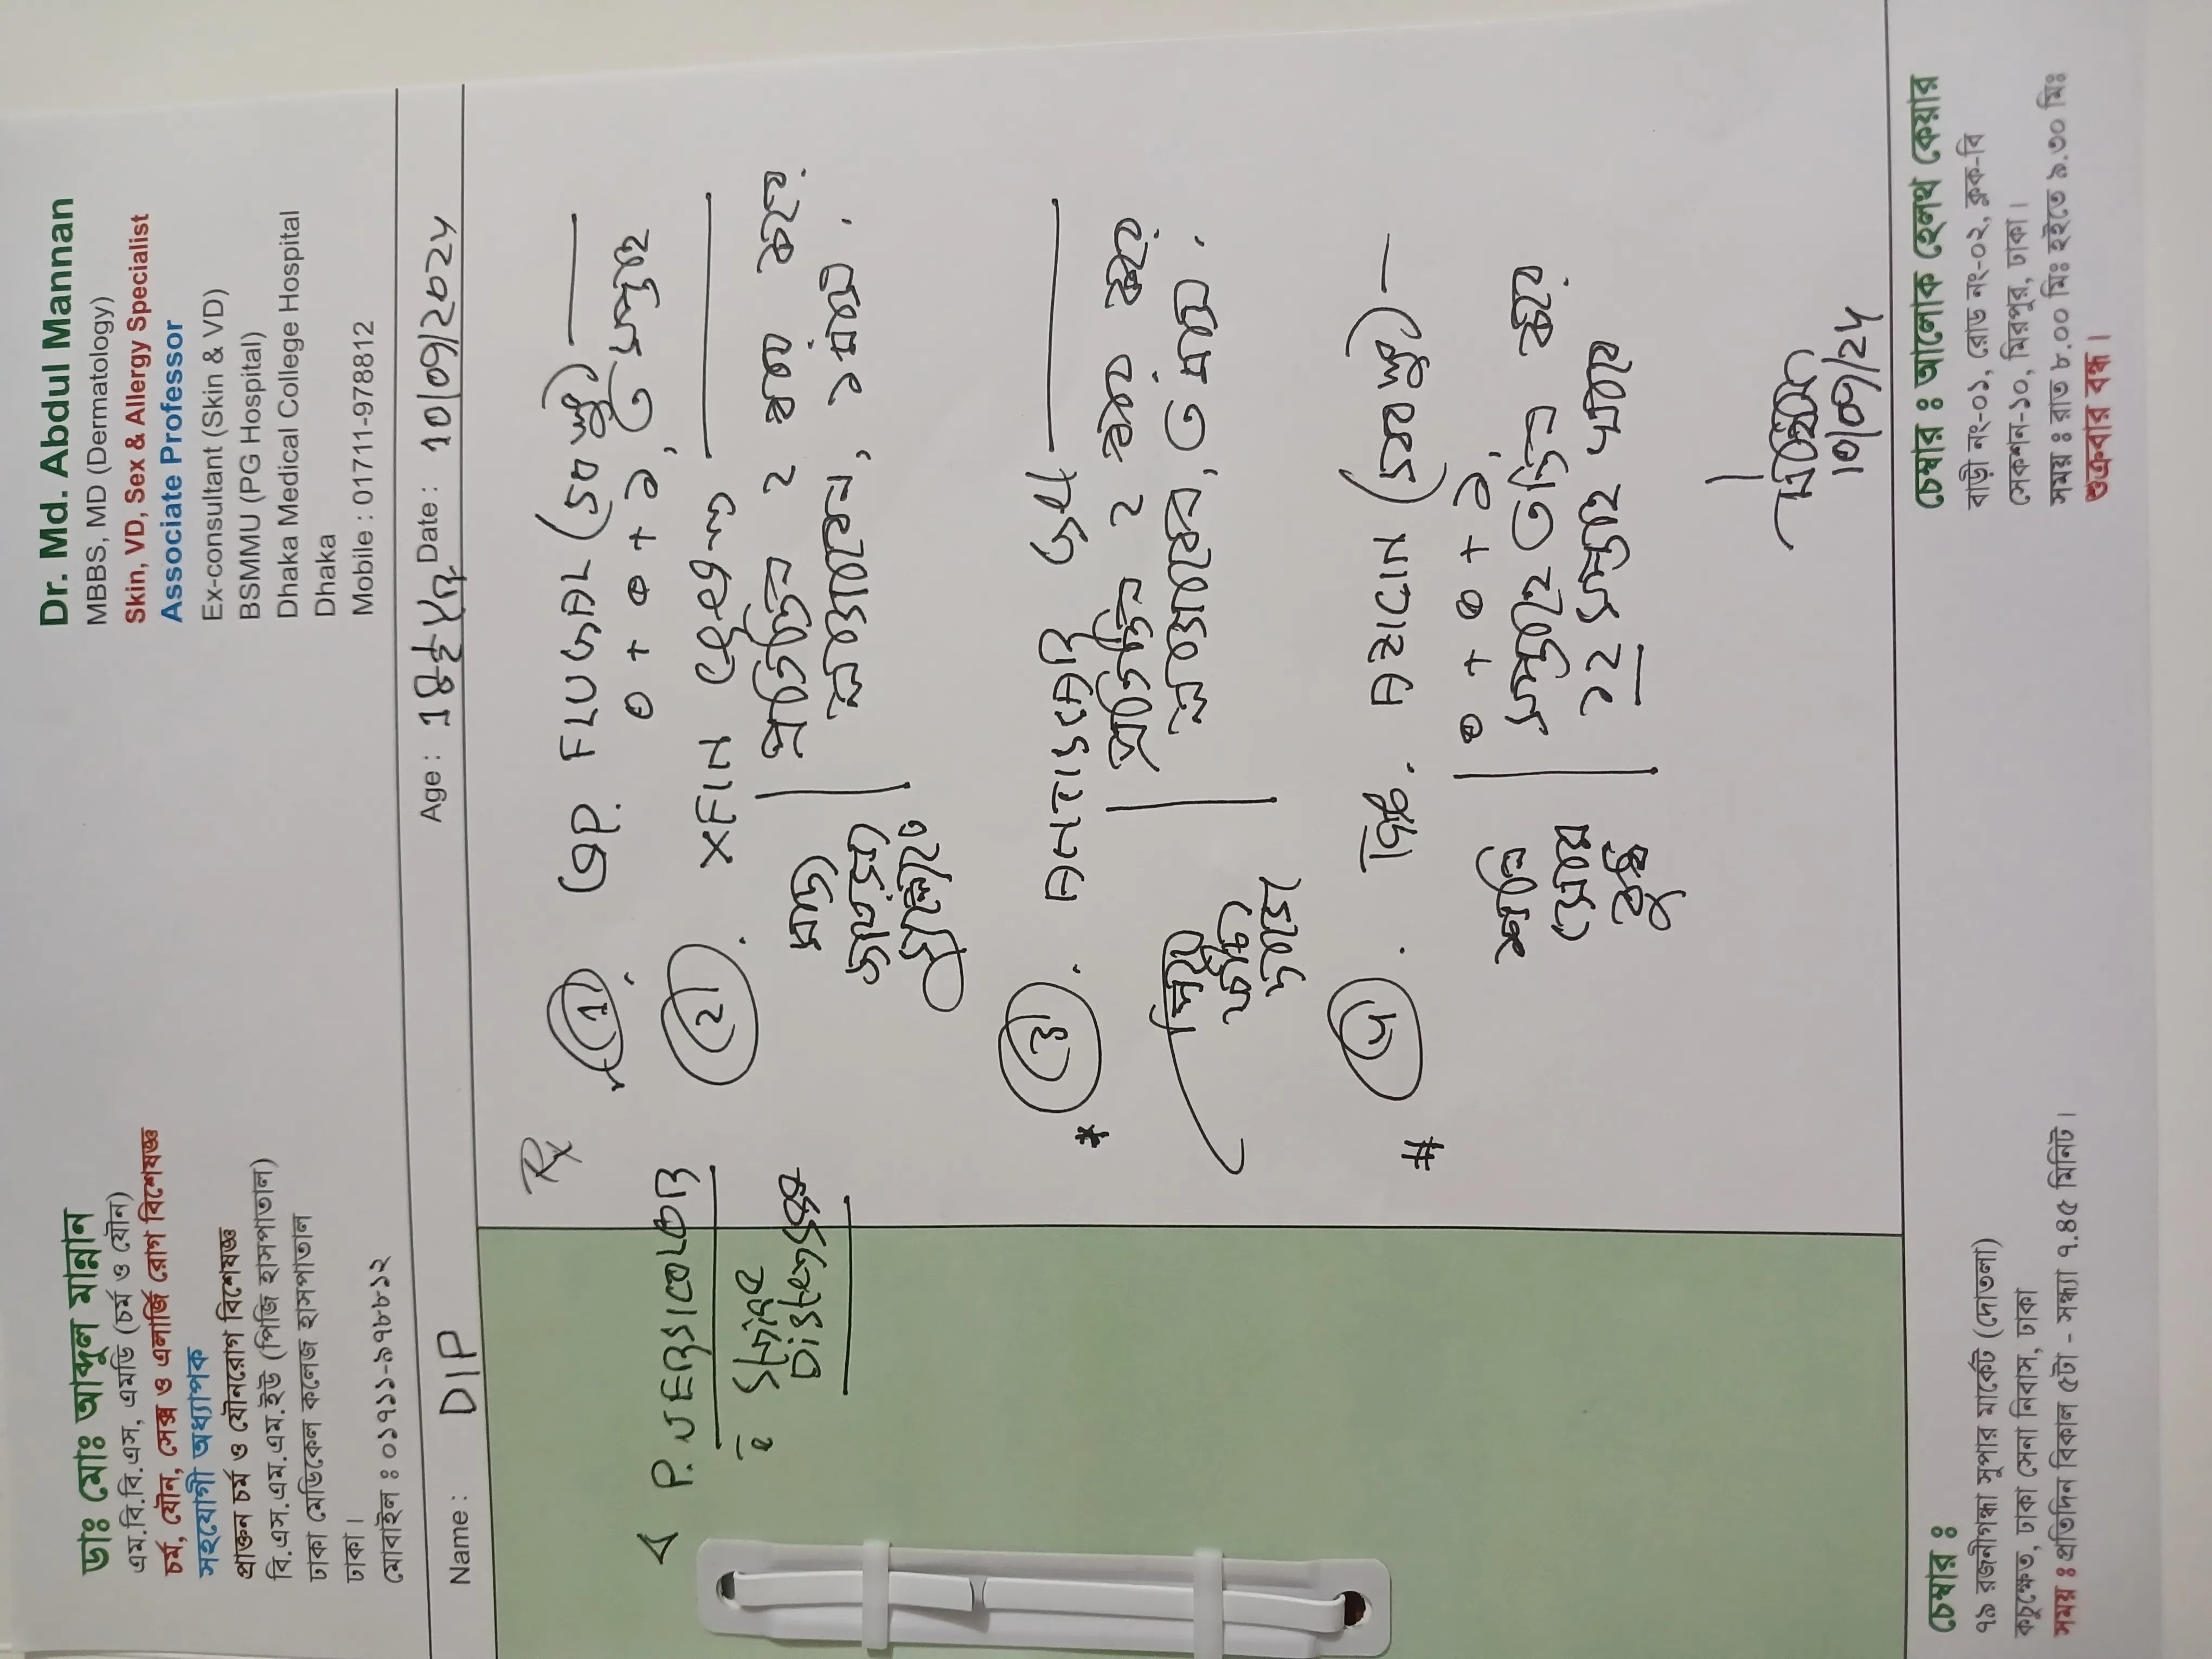 ডাঃ মোঃ আব্দুল মান্নান
এম.বি.বি.এস, এমডি (চর্ম ও যৌন)
চর্ম, যৌন, সেক্স ও এলার্জি রোগ বিশেষজ্ঞ
সহযোগী অধ্যাপক
প্রাক্তন চর্ম ও যৌনরোগ বিশেষজ্ঞ
বি.এস.এম.এম.ইউ (পিজি হাসপাতাল)
ঢাকা মেডিকেল কলেজ হাসপাতাল
ঢাকা।
মোবাইল : ০১৭১১-৯৭৮৮১২
Dr. Md. Abdul Mannan
MBBS, MD (Dermatology)
Skin, VD, Sex & Allergy Specialist
Associate Professor
Ex-consultant (Skin & VD)
BSMMU (PG Hospital)
Dhaka Medical College Hospital
Dhaka
Mobile : 01711-9788812
Name : DIP Age : 18 Date : 10/09/2024
P. VERSICOLOR
Striae
Distensae
Rx
1. FLUGAL (৫০)
০ + ০ + ১,
2. XFIN ক্রিম
প্রতিদিন ২ বার করে
লাগাবেন, ১ মাস.
3.
প্রতিদিন ২ বার করে
লাগাবেন, ৩ মাস.
4. AZICIN (৫০০)
০ + ০ + ১,
সপ্তাহে ৩ দিন করে
১২ সপ্তাহ খাবে
10/09/24
চেম্বার :
৭৯ রজনীগন্ধা সুপার মার্কেট (দোতলা)
কচুক্ষেত, ঢাকা সেনা নিবাস, ঢাকা
সময় : প্রতিদিন বিকাল ৫টা - সন্ধ্যা ৭.৪৫ মিনিট।
চেম্বার : আলোক হেলথ কেয়ার
বাড়ী নং-০১, রোড নং-০২, ব্লক-বি
সেকশন-১০, মিরপুর, ঢাকা।
সময় : রাত ৮.০০ মিঃ হইতে ৯.৩০ মিঃ
শুক্রবার বন্ধ।